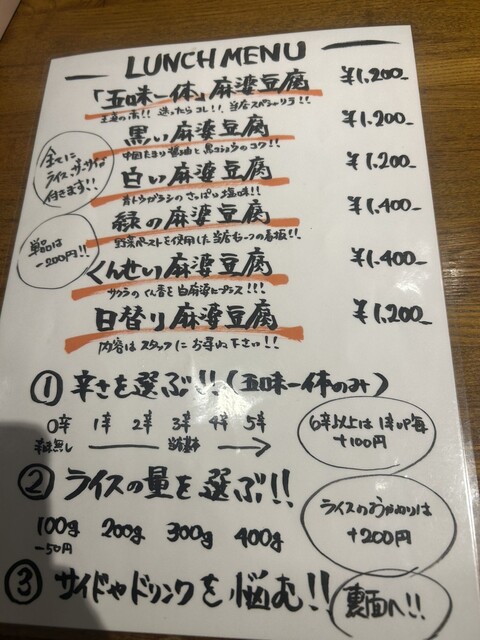 LUNCH MENU
「五味一体」麻婆豆腐 ¥1,200-
王道の赤!! 迷ったらコレ!! 当店スペシャリテ!!
黒い麻婆豆腐 ¥1,200-
中国たまり醤油と黒コショウのコク!!
白い麻婆豆腐 ¥1,200-
青トウガラシのさっぱり塩味!!
緑の麻婆豆腐 ¥1,400-
野菜ペーストを使用した当店もう一つの看板!!
くんせい麻婆豆腐 ¥1,400-
サクラのくん香を白麻婆にプラス!!!
日替り麻婆豆腐 ¥1,200-
内容はスタッフにお尋ね下さい!!
全てに
ライス、ザーサイが
付きます!!
単品は
-200円!!
① 辛さを選ぶ!!(五味一体のみ)
0辛 1辛 2辛 3辛 4辛 5辛
辛味無し 当店基本
6辛以上は1辛UP毎
+100円
② ライスの量を選ぶ!!
100g 200g 300g 400g
-50円
ライスのおかわりは
+200円
③ サイドやドリンクを悩む!!
裏面へ!!